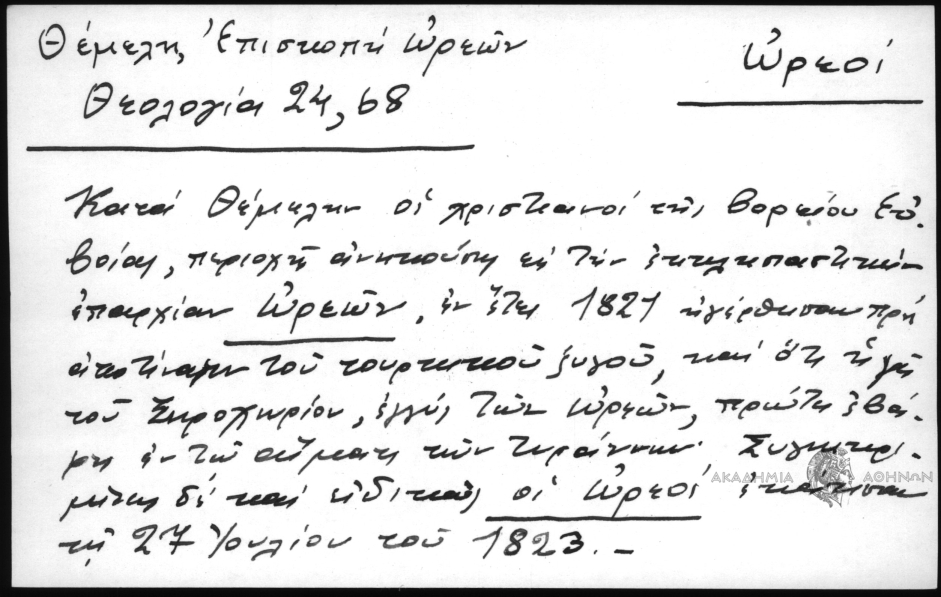 Θέμελη, Ἐπισκοπή Ὠρεῶν
Ὠρεοί
Θεολογία 24, 68
Κατά Θέμελην οἱ χριστιανοί τῆς βορείου Εὐ-
βοίας, περιοχῆς ἀνηκούσης εἰς τήν ἐκκλησιαστικήν
ἐπαρχίαν Ὠρεῶν, ἐν ἔτει 1821 ἠγέρθησαν πρός
ἀποτίναξιν τοῦ τουρκικοῦ ζυγοῦ, καί ὅτι ἡ γῆ
τοῦ Ξηροχωρίου, ἐγγύς τῶν Ὠρεῶν, πρώτη ἐβά-
φη ἐν τῷ αἵματι τῶν τυράννων. Συγκεκρι-
μένως δέ καί εἰδικῶς οἱ Ὠρεοί
τῇ 27 Ἰουλίου τοῦ 1823. –
ΑΚΑΔΗΜΙΑ ΑΘΗΝΩΝ